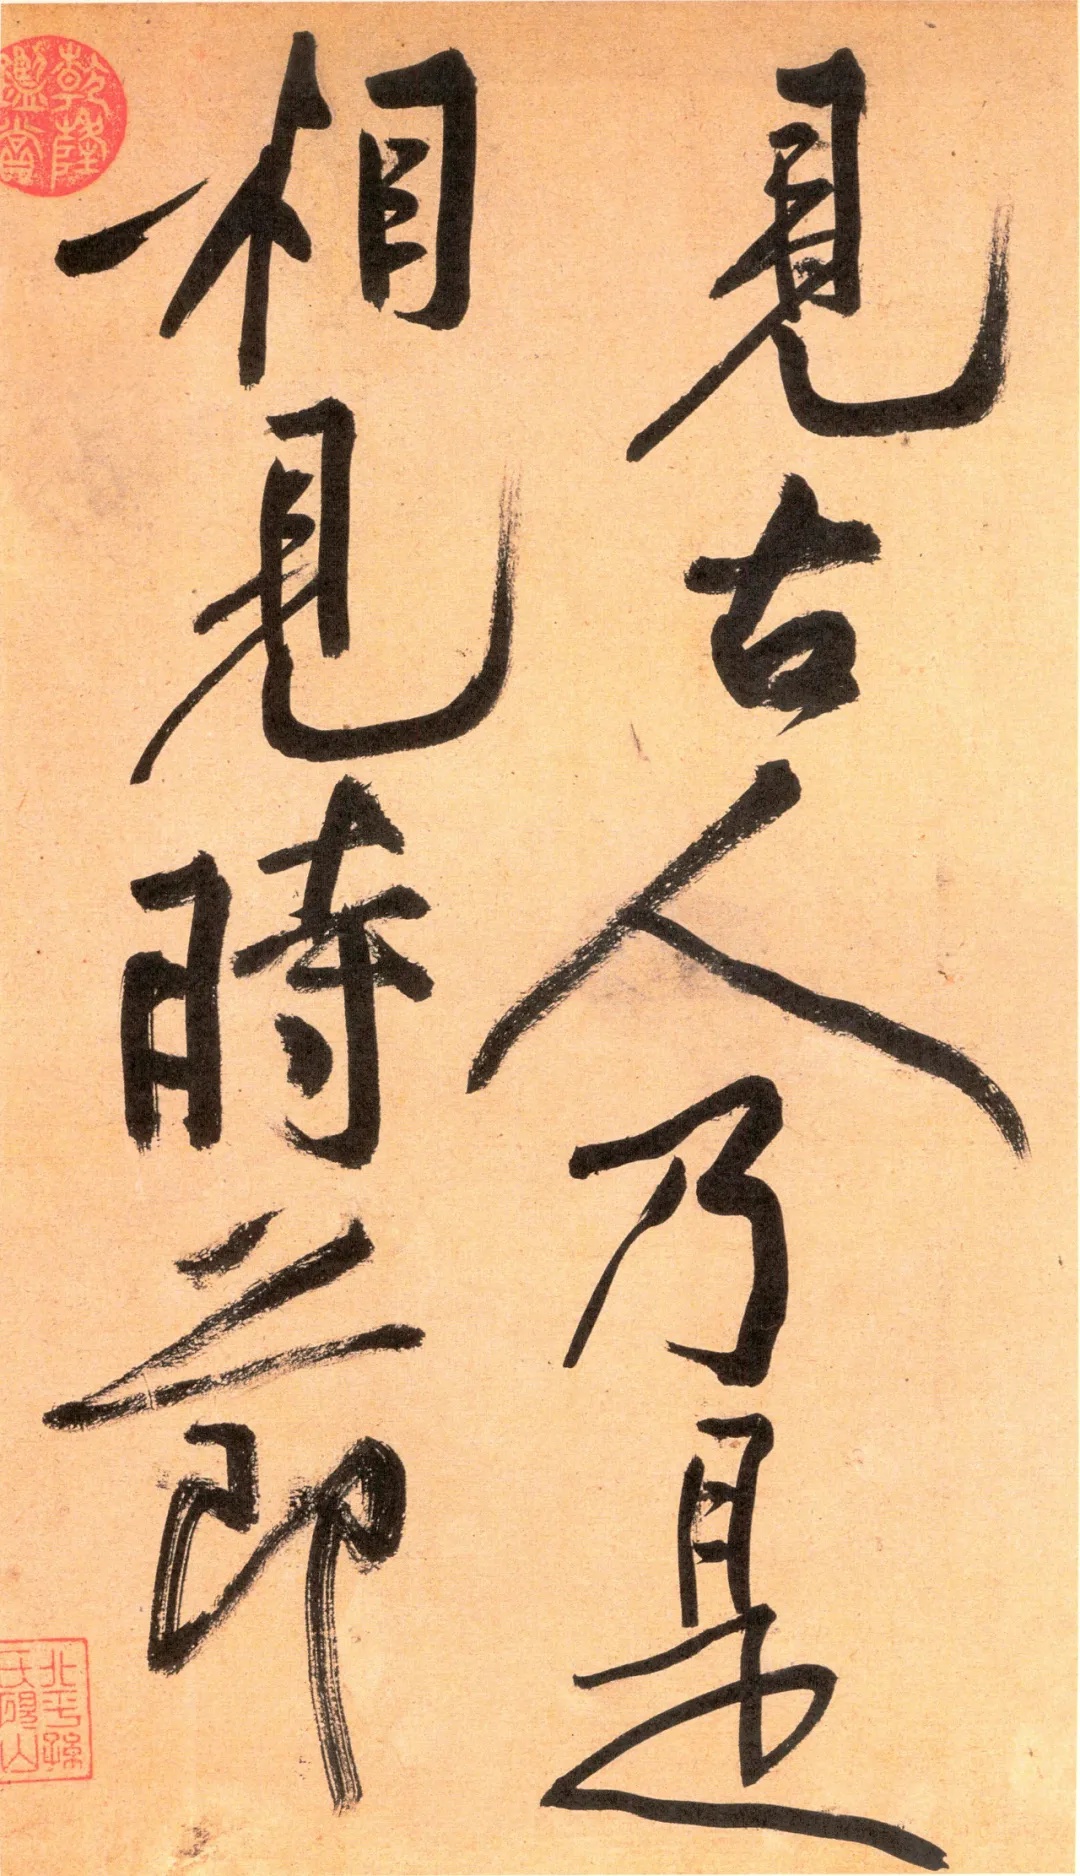 見古人乃是
相見時之即
乾隆鑑賞
北平孫氏硯山